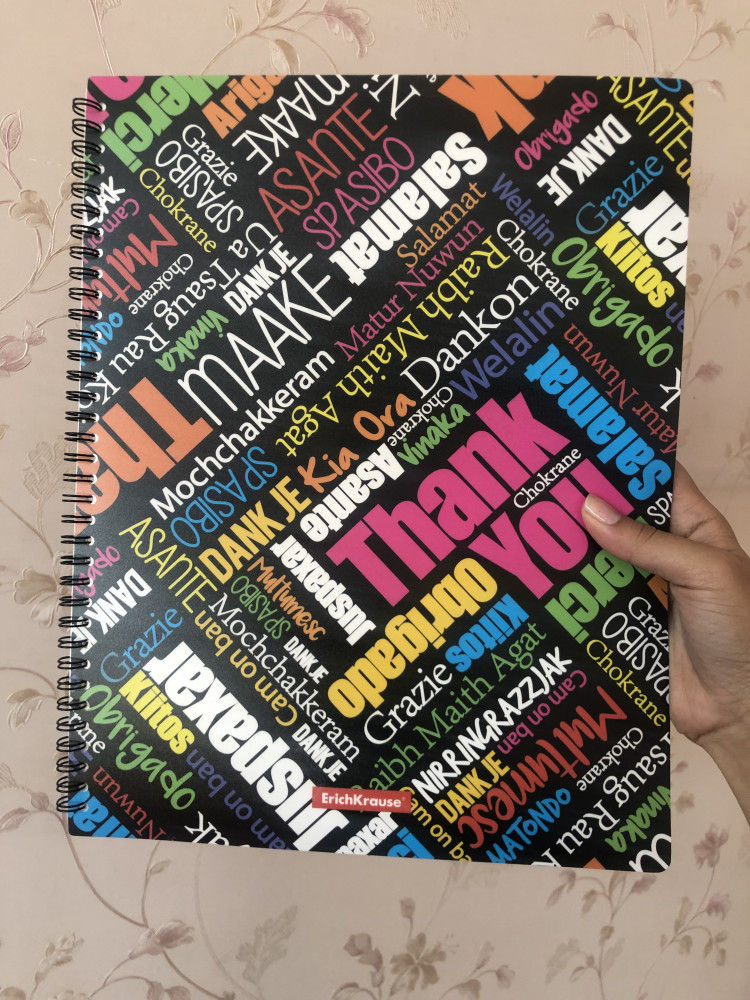 Merci
Ariga
MAAKE
Grazie
SPASIBO
Chokrane
ASANTE
SPASIBO
Salamat
Salamat
Obrigado
DANK JE
ASANTE
Grazie
Welalin
Chokrane
Kiitos
Obrigado
Matur Nuwun
Salamat
Multum
Chokrane
Ua Tsaug Rau K
Vinaka
DANK JE
MAAKE
Matur Nuwun
Raibh Maith Agat
Dankon
Welalin
Tha
Mochchakkeram
SPASIBO
DANK JE
Kia Ora
Chokrane
Vinaka
Asante
Thank
Chokrane
You
Juspaxar
ASANTE
DANK JE
Grazie
Multumesc
SPASIBO
Mochchakkeram
DANK JE
Cam on ban
Obrigado
Kiitos
Grazie
Raibh Maith Agat
NIRRINGRAZZJAK
Cam on ban
Multumesc
DANK JE
MATONDO
Merci
SPASIBO
Chokrane
Chokrane
Ua Tsaug Rau
Vinaka
Kiitos
Obrigado
Juspaxar
DANK JE
am on ban
Nuwun
am on ba
ErichKrause